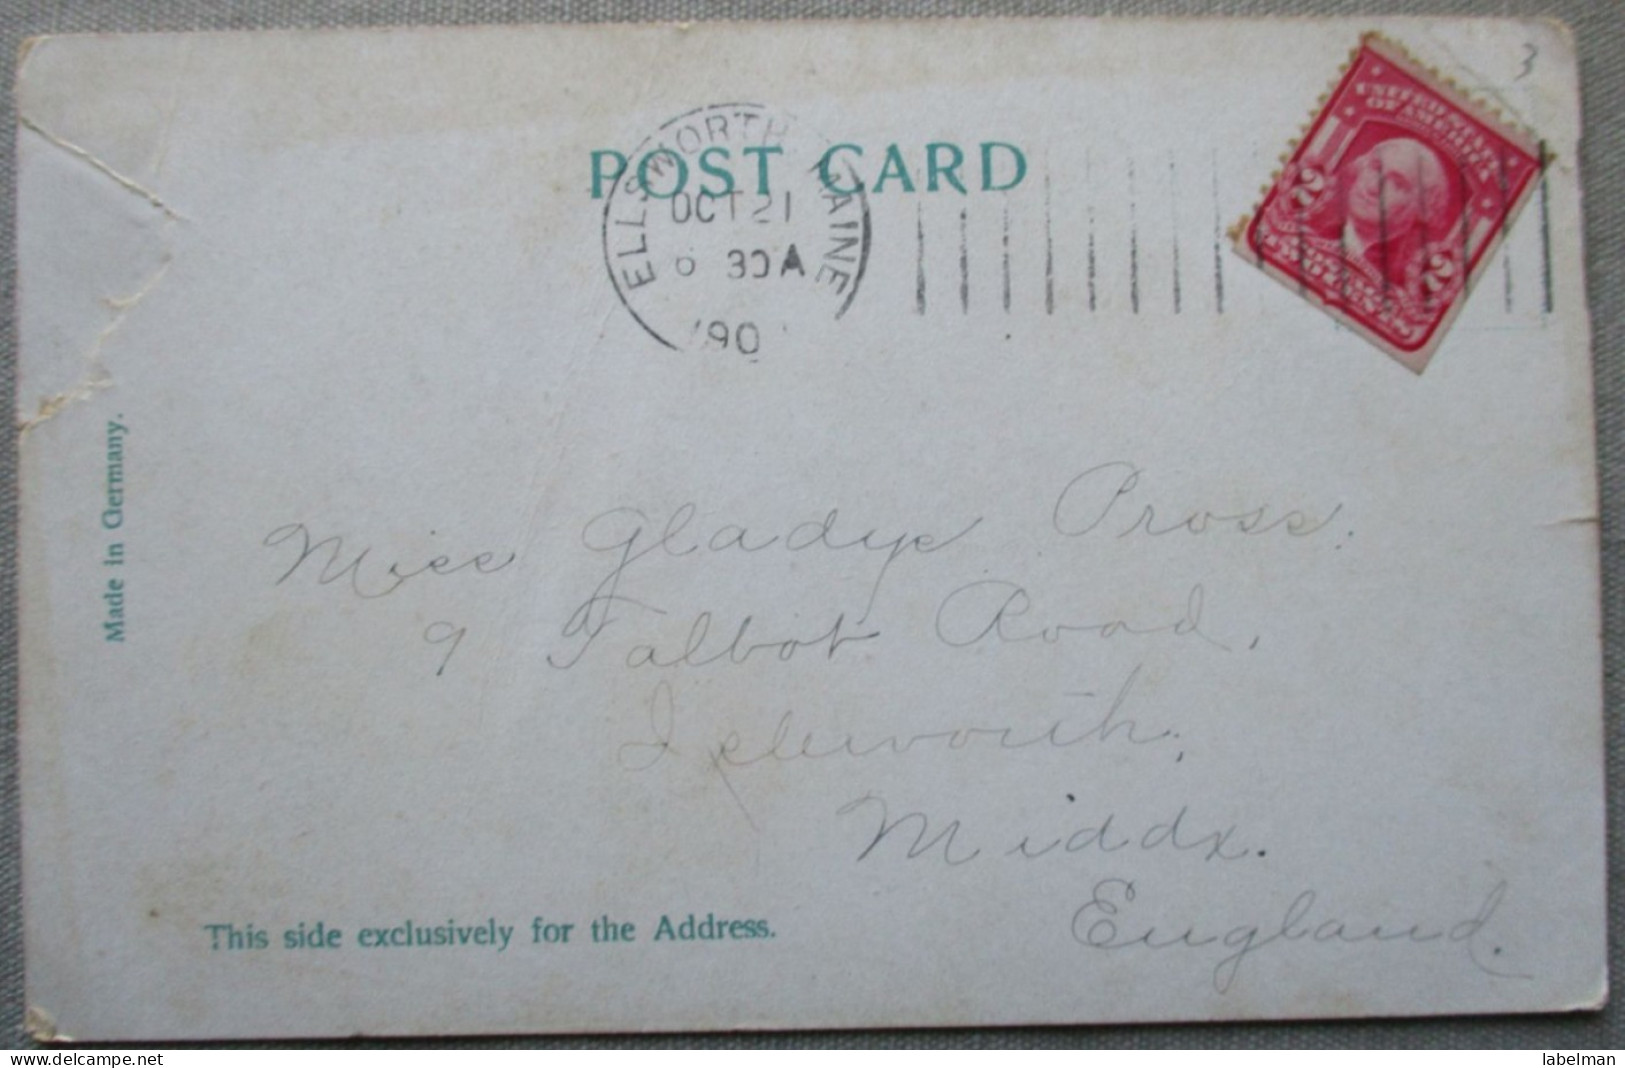 3
POST CARD
ELLSWORTH MAINE
OCT 21
6 30 A
190
UNITED STATES
OF AMERICA
2 2
TWO CENTS
Made in Germany.
Miss Gladys Pross.
9 Talbot Road,
Isleworth,
Middx.
England.
This side exclusively for the Address.
labelman